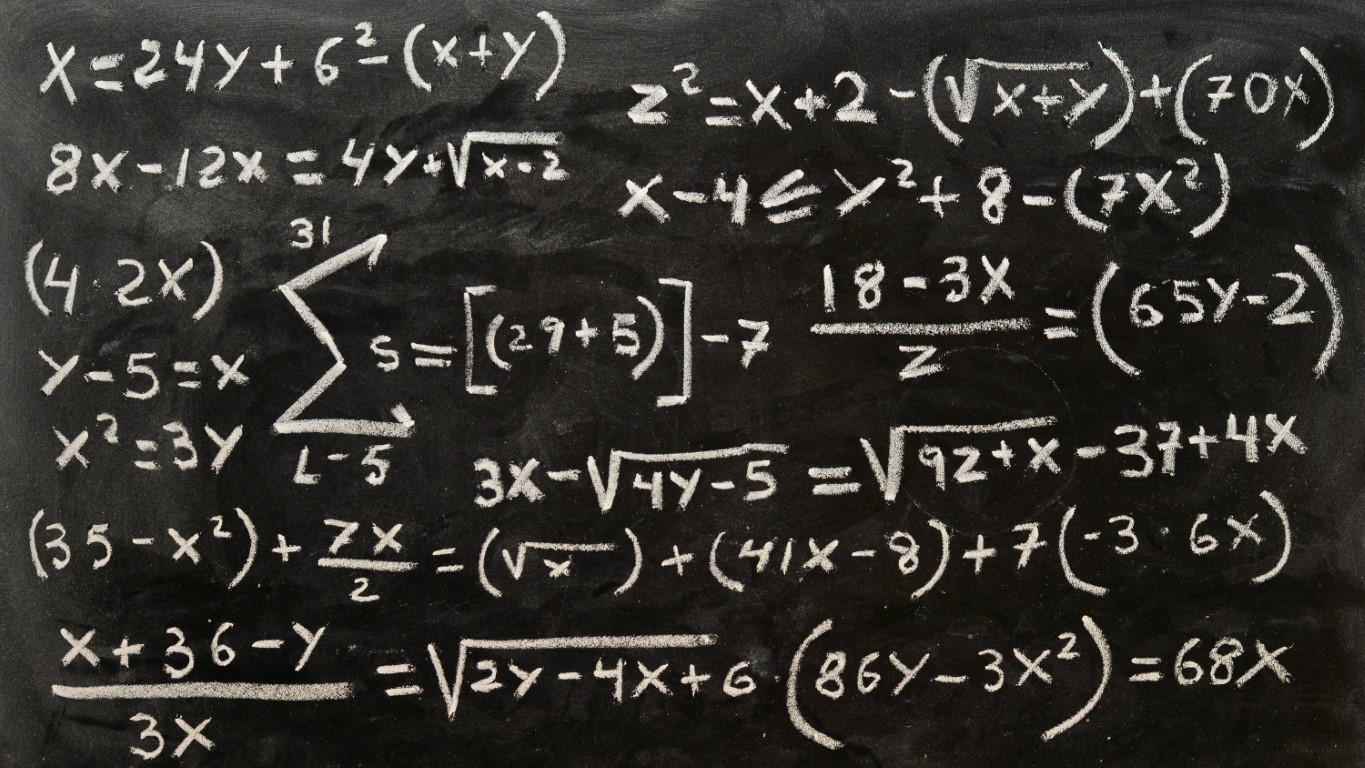 x=24y+6²-(x+y)
z²=x+2-(√x+y)+(70x)
8x-12x=4y+√x-2
x-4≤y²+8-(7x²)
(4·2x)
y-5=x
x²=3y
31
∑ s=[(29+5)]-7
L-5
18-3x
/z =(65y-2)
3x-√4y-5=√92+x-37+4x
(35-x²)+7x/2=(√x)+(41x-8)+7(-3·6x)
x+36-y/3x=√2y-4x+6·(86y-3x²)=68x